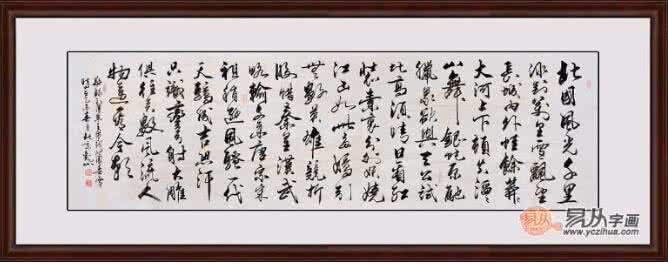 北國風光千里
冰封萬里雪飄望
長城內外惟餘莽
大河上下頓失滔
山舞銀蛇原馳
臘象欲與天公試
比高須晴日看紅
裝素裹分外妖嬈
江山如此多嬌引
無數英雄競折
腰惜秦皇漢武
略輸文采唐宗宋
祖稍遜風騷一代
天驕成吉思汗
只識彎弓射大雕
俱往矣數風流人
物還看今朝
易从
易从字画
www.yczihua.com